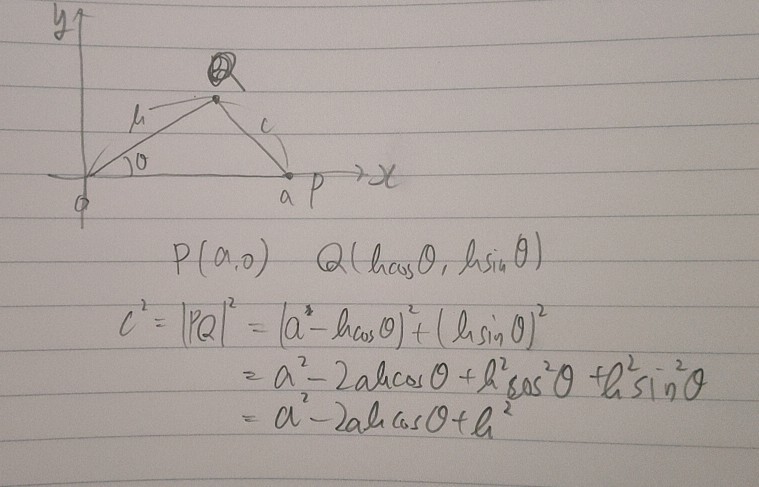 y
Q
h
c
θ
O
a P
x
P(a,0) Q(hcosθ, hsinθ)
c² = |PQ|² = (a - hcosθ)² + (hsinθ)²
= a² - 2ahcosθ + h²cos²θ + h²sin²θ
= a² - 2ahcosθ + h²